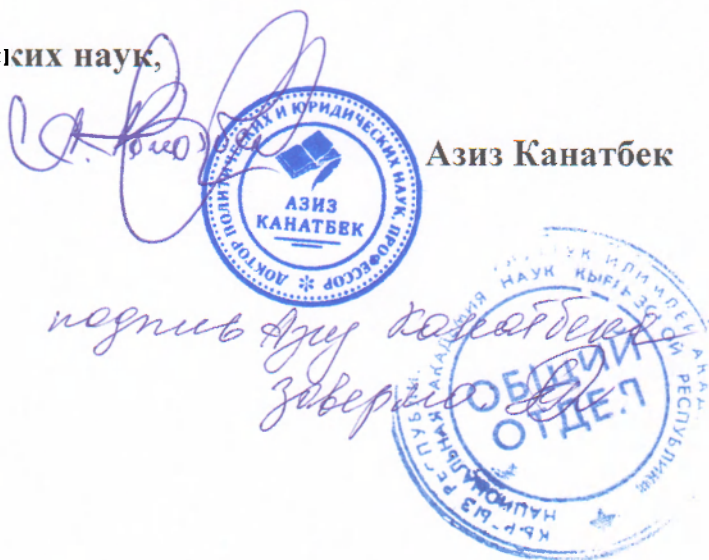 ких наук,
Азиз Канатбек
ДОКТОР ПОЛИТИЧЕСКИХ И ЮРИДИЧЕСКИХ НАУК, ПРОФЕССОР
АЗИЗ
КАНАТБЕК
подпись Азиз Канатбека
заверяю.
НАЦИОНАЛЬНАЯ АКАДЕМИЯ НАУК КЫРГЫЗСКОЙ РЕСПУБЛИКИ
КЫРГЫЗ РЕСПУБЛИ
ИЛИМДЕР АКАД
ОБЩИЙ
ОТДЕЛ